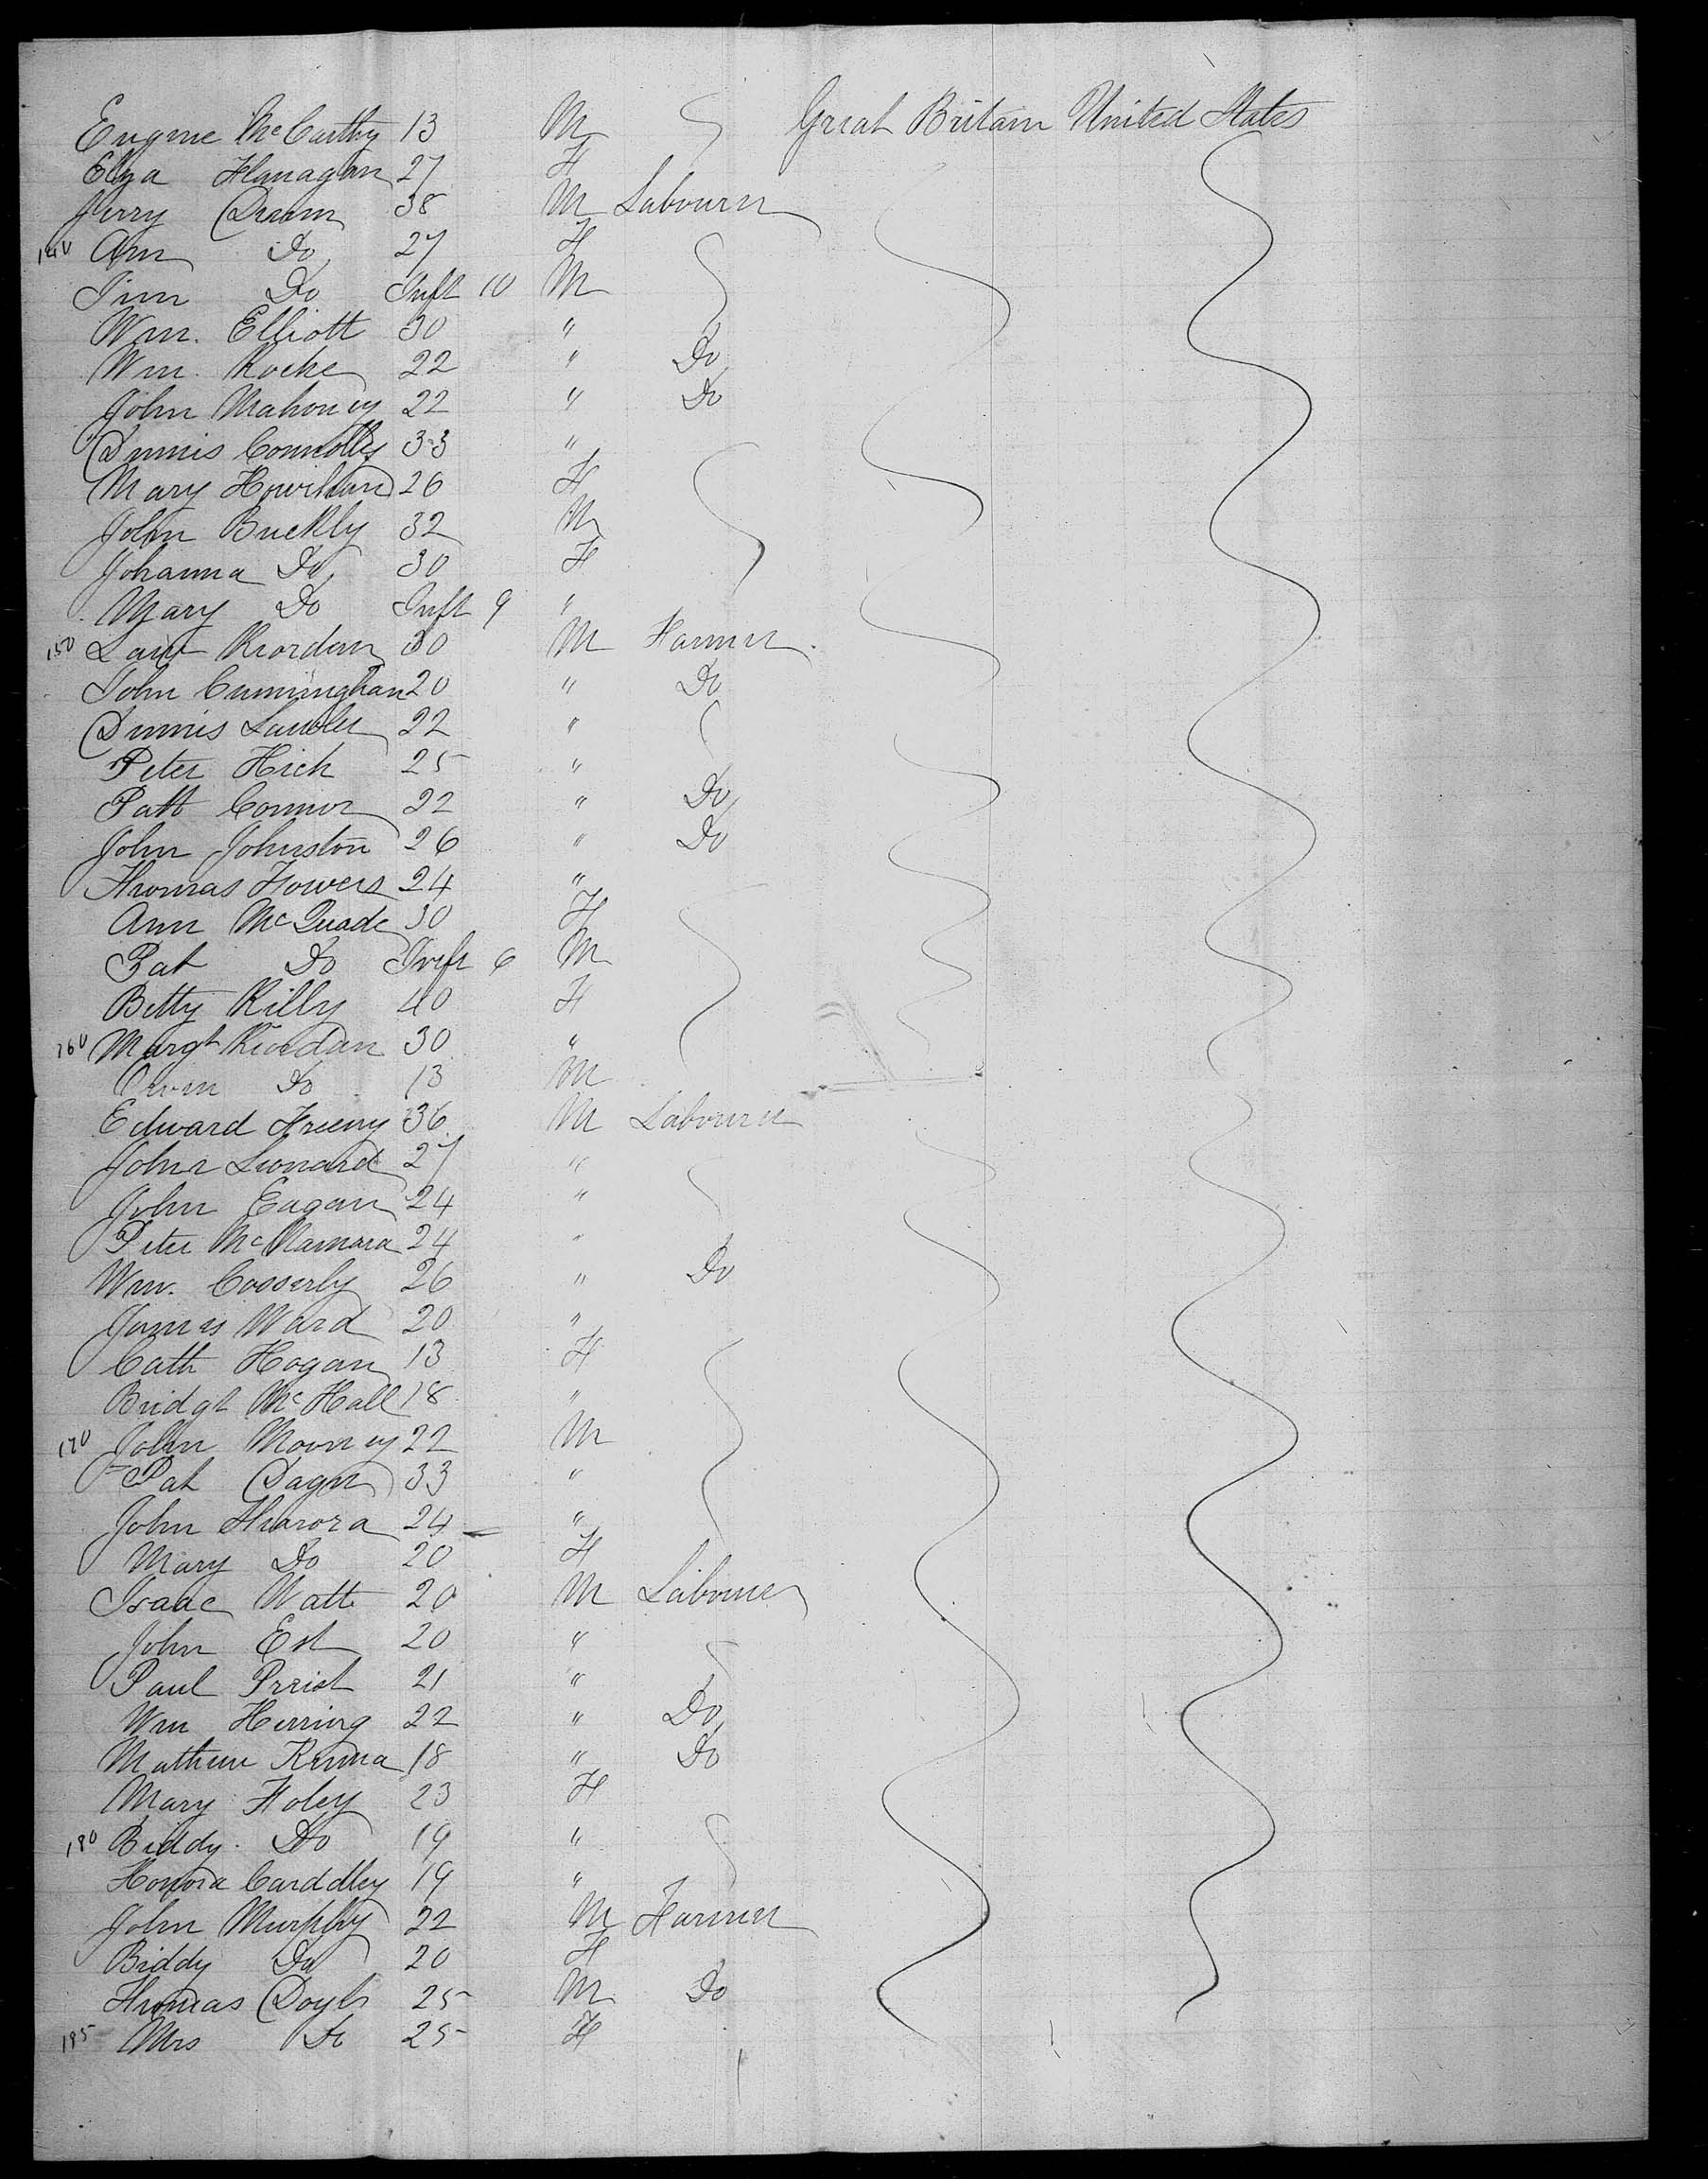 Eugene McCarthy 13 M Great Britain United States
Eliza Flanagan 27 F
Jerry 38 M Labourer
140 Ann Do 27 F
Jim Do Inft 10 M
Wm. Elliott 30 "
Wm. Roche 22 " Do
John Mahoney 22 " Do
Dennis Connolly 33 "
Mary 26 F
John Buckly 32 M
Johanna Do 30 F
Mary Do Inft 9 "
150 Riordan 30 M Farmer
John Cunningham 20 " Do
Dennis Lawler 22 "
Peter Hick 25 "
Patt Connor 22 " Do
John Johnston 26 " Do
Thomas Powers 24 "
Ann McQuade 30 F
Pat Do Inft 6 M
Betty Killy 40 F
160 Margt Riordan 30 "
Owen Do 13 M
Edward Freeny 36 M Labourer
John Leonard 27 "
John Eagan 24 "
Peter McNamara 24 "
Wm. Cosserly 26 " Do
James Ward 20 "
Cath Hogan 13 F
Bridgt McHall 18 "
170 John Mooney 22 M
Pat 33 "
John 24 "
Mary Do 20 F
Isaac Watt 20 M Labourer
John Est 20 "
Paul Priest 21 "
Wm Herring 22 " Do
Mathew 18 " Do
Mary Foley 23 F
180 Biddy Do 19 "
Honora 19 "
John Murphy 22 M Farmer
Biddy Do 20 F
Thomas Doyle 25 M Do
185 Mrs Do 25 F